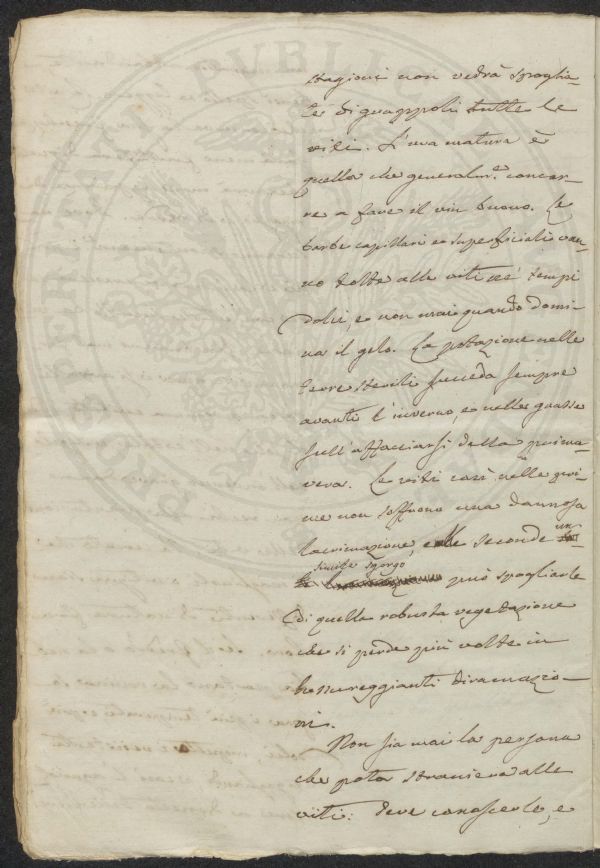 stagioni non vedrà spoglia-
te di grappoli tutte le
viti. L'uva matura è
quella che generalm.e concor-
re a fare il vin buono. Le
barbe capillari e superficiali van-
no tolte alle viti ne' tempi
dolci, e non mai quando domi-
na il gelo. La potazione nelle
terre sterili succeda sempre
avanti l'inverno, e nelle grasse
sull'affacciarsi della prima-
vera. Le viti così nelle pri-
me non soffrono una dannosa
lacrimazione, e alle seconde un
simile sgorgo può spogliarle
di quella robusta vegetazione
che si perde più volte in
lussureggianti diramazio-
ni.
Non sia mai la persona
che pota straniera alle
viti: deve conoscerle, e